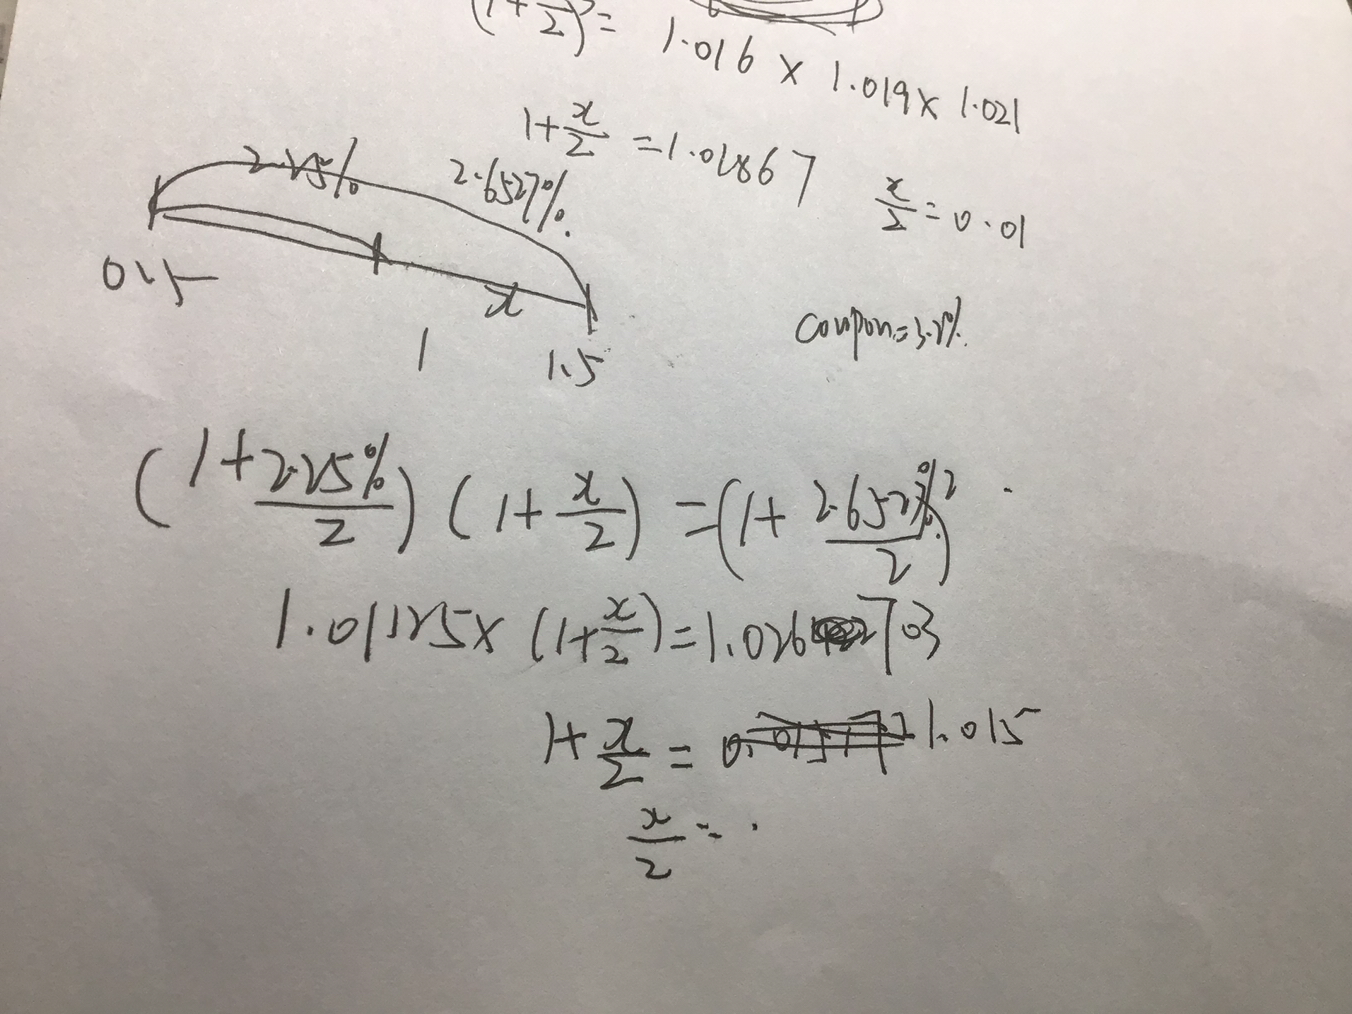 (1+x/2)³= 1.016 × 1.019 × 1.021
1+x/2 =1.01867
x/2 = 0.01
2.25% 2.6527%.
0.5 1 x 1.5
coupon=3.2%.
(1+2.25%/2) (1+x/2) =(1+2.6527%/2)²
1.01125× (1+x/2)=1.02673
1+x/2 = 1.015
x/2 = .